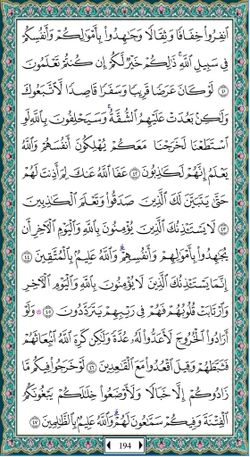 ٱنفِرُوا۟ خِفَافًا وَثِقَالًا وَجَٰهِدُوا۟ بِأَمْوَٰلِكُمْ وَأَنفُسِكُمْ
فِى سَبِيلِ ٱللَّهِ ذَٰلِكُمْ خَيْرٌ لَّكُمْ إِن كُنتُمْ تَعْلَمُونَ
٤١ لَوْ كَانَ عَرَضًا قَرِيبًا وَسَفَرًا قَاصِدًا لَّٱتَّبَعُوكَ
وَلَٰكِنۢ بَعُدَتْ عَلَيْهِمُ ٱلشُّقَّةُ وَسَيَحْلِفُونَ بِٱللَّهِ لَوِ
ٱسْتَطَعْنَا لَخَرَجْنَا مَعَكُمْ يُهْلِكُونَ أَنفُسَهُمْ وَٱللَّهُ
يَعْلَمُ إِنَّهُمْ لَكَٰذِبُونَ ٤٢ عَفَا ٱللَّهُ عَنكَ لِمَ أَذِنتَ لَهُمْ
حَتَّىٰ يَتَبَيَّنَ لَكَ ٱلَّذِينَ صَدَقُوا۟ وَتَعْلَمَ ٱلْكَٰذِبِينَ
٤٣ لَا يَسْتَـْٔذِنُكَ ٱلَّذِينَ يُؤْمِنُونَ بِٱللَّهِ وَٱلْيَوْمِ ٱلْءَاخِرِ أَن
يُجَٰهِدُوا۟ بِأَمْوَٰلِهِمْ وَأَنفُسِهِمْ وَٱللَّهُ عَلِيمٌۢ بِٱلْمُتَّقِينَ ٤٤
إِنَّمَا يَسْتَـْٔذِنُكَ ٱلَّذِينَ لَا يُؤْمِنُونَ بِٱللَّهِ وَٱلْيَوْمِ ٱلْءَاخِرِ
وَٱرْتَابَتْ قُلُوبُهُمْ فَهُمْ فِى رَيْبِهِمْ يَتَرَدَّدُونَ ٤٥ وَلَوْ
أَرَادُوا۟ ٱلْخُرُوجَ لَأَعَدُّوا۟ لَهُۥ عُدَّةً وَلَٰكِن كَرِهَ ٱللَّهُ ٱنۢبِعَاثَهُمْ
فَثَبَّطَهُمْ وَقِيلَ ٱقْعُدُوا۟ مَعَ ٱلْقَٰعِدِينَ ٤٦ لَوْ خَرَجُوا۟ فِيكُم مَّا
زَادُوكُمْ إِلَّا خَبَالًا وَلَأَوْضَعُوا۟ خِلَٰلَكُمْ يَبْغُونَكُمُ
ٱلْفِتْنَةَ وَفِيكُمْ سَمَّٰعُونَ لَهُمْ وَٱللَّهُ عَلِيمٌۢ بِٱلظَّٰلِمِينَ ٤٧
194